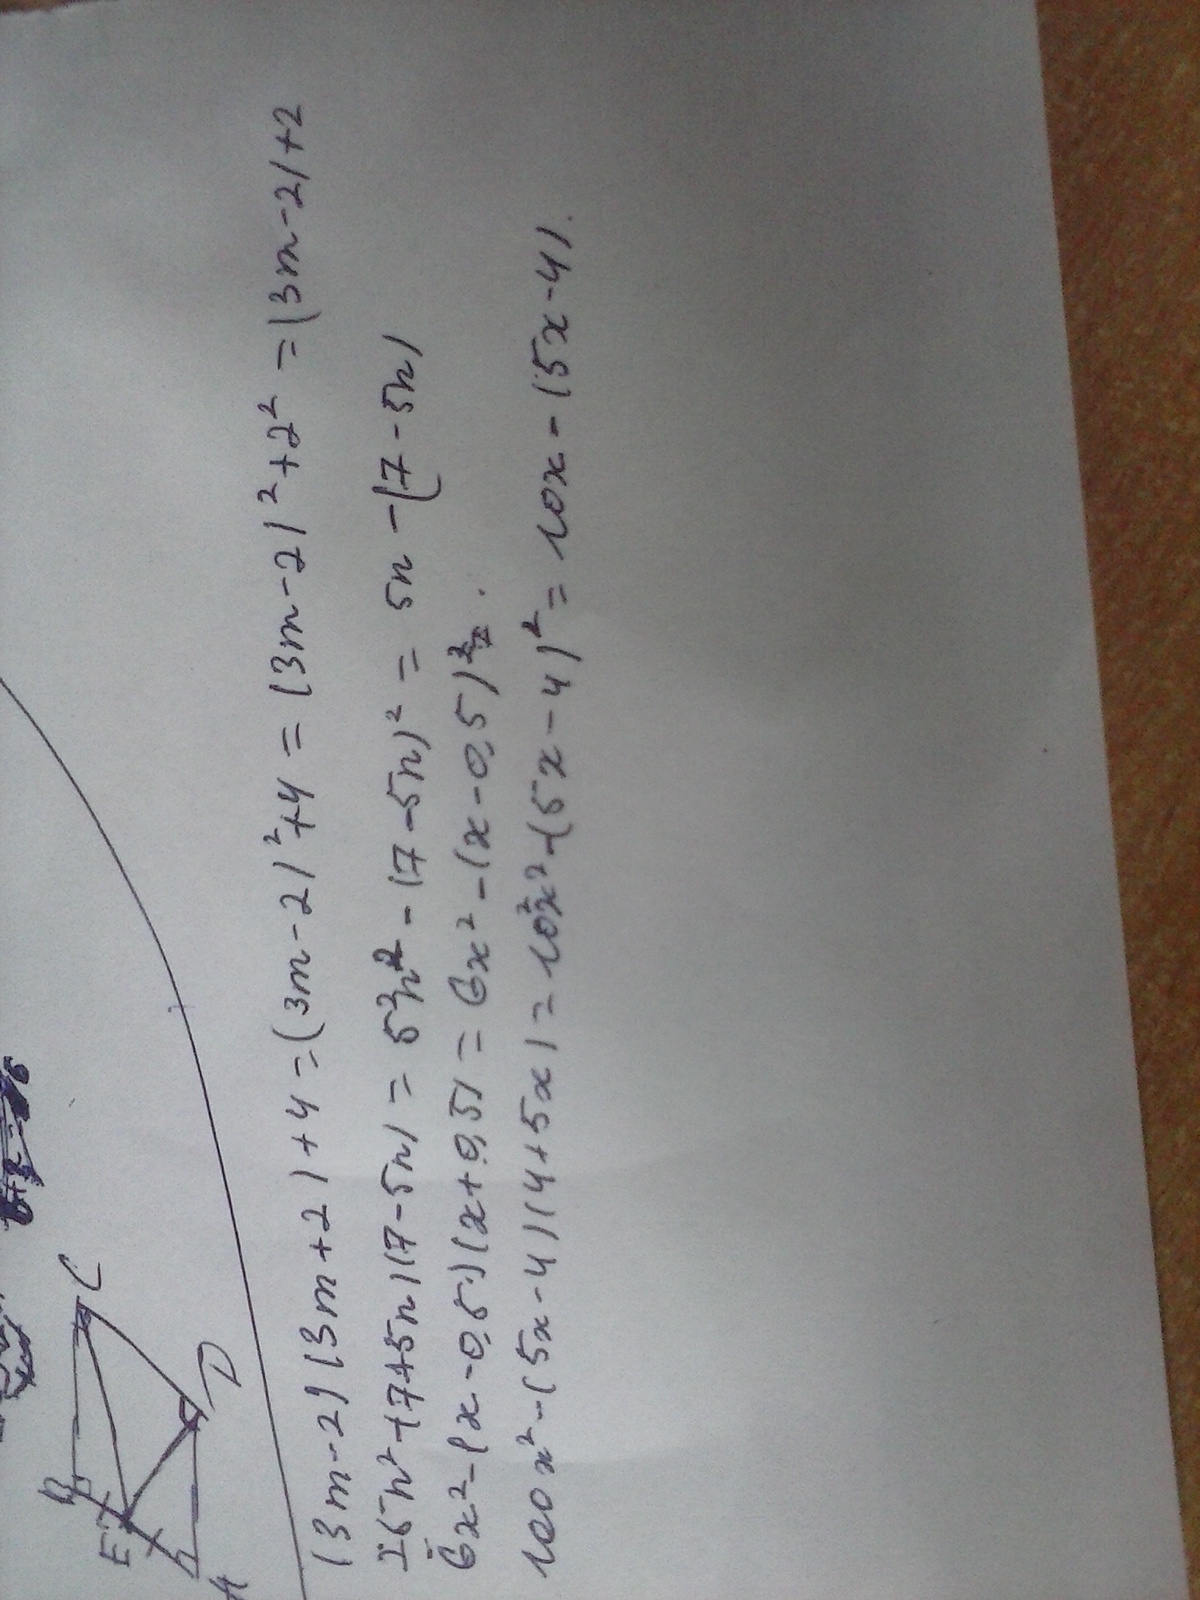 B
C
E
A
D
(3m-2)(3m+2)+4=(3m-2)²+4=(3m-2)²+2²=(3m-2)+2
n²-(7+5n)(7-5n)=5²n²-(7-5n)²=5n-(7-5n)
6x²-(x-0,5)(x+0,5)=6x²-(x-0,5)²
100x²-(5x-4)(4+5x)=10²x²-(5x-4)²=10x-(5x-4).